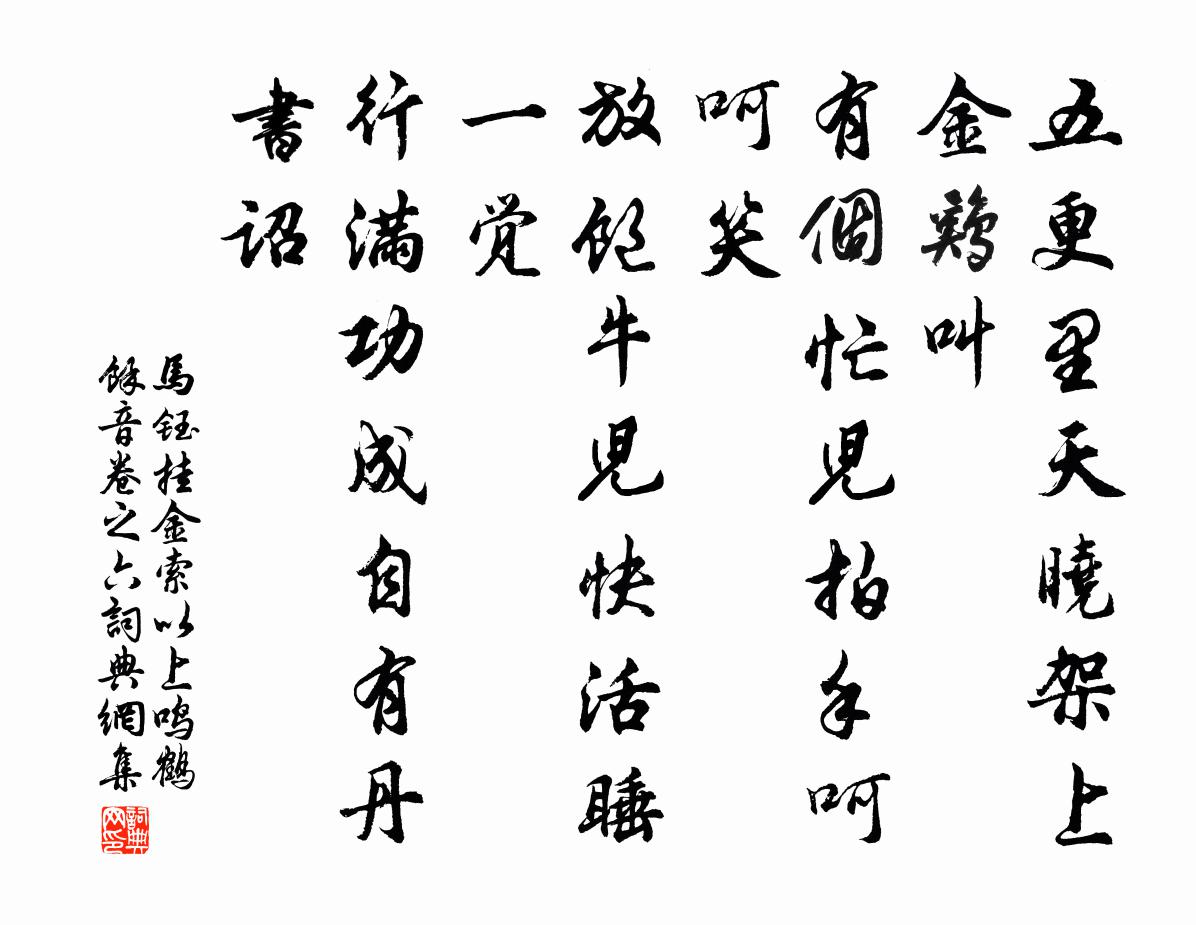 五更里天曉架上
金鷄叫
有個忙児拍手呵
呵笑
放飽牛児快活睡
一覺
行滿功成自有丹
書詔
馬鈺挂金索以上鳴鶴
餘音卷之六詞典網集
詞典
网印